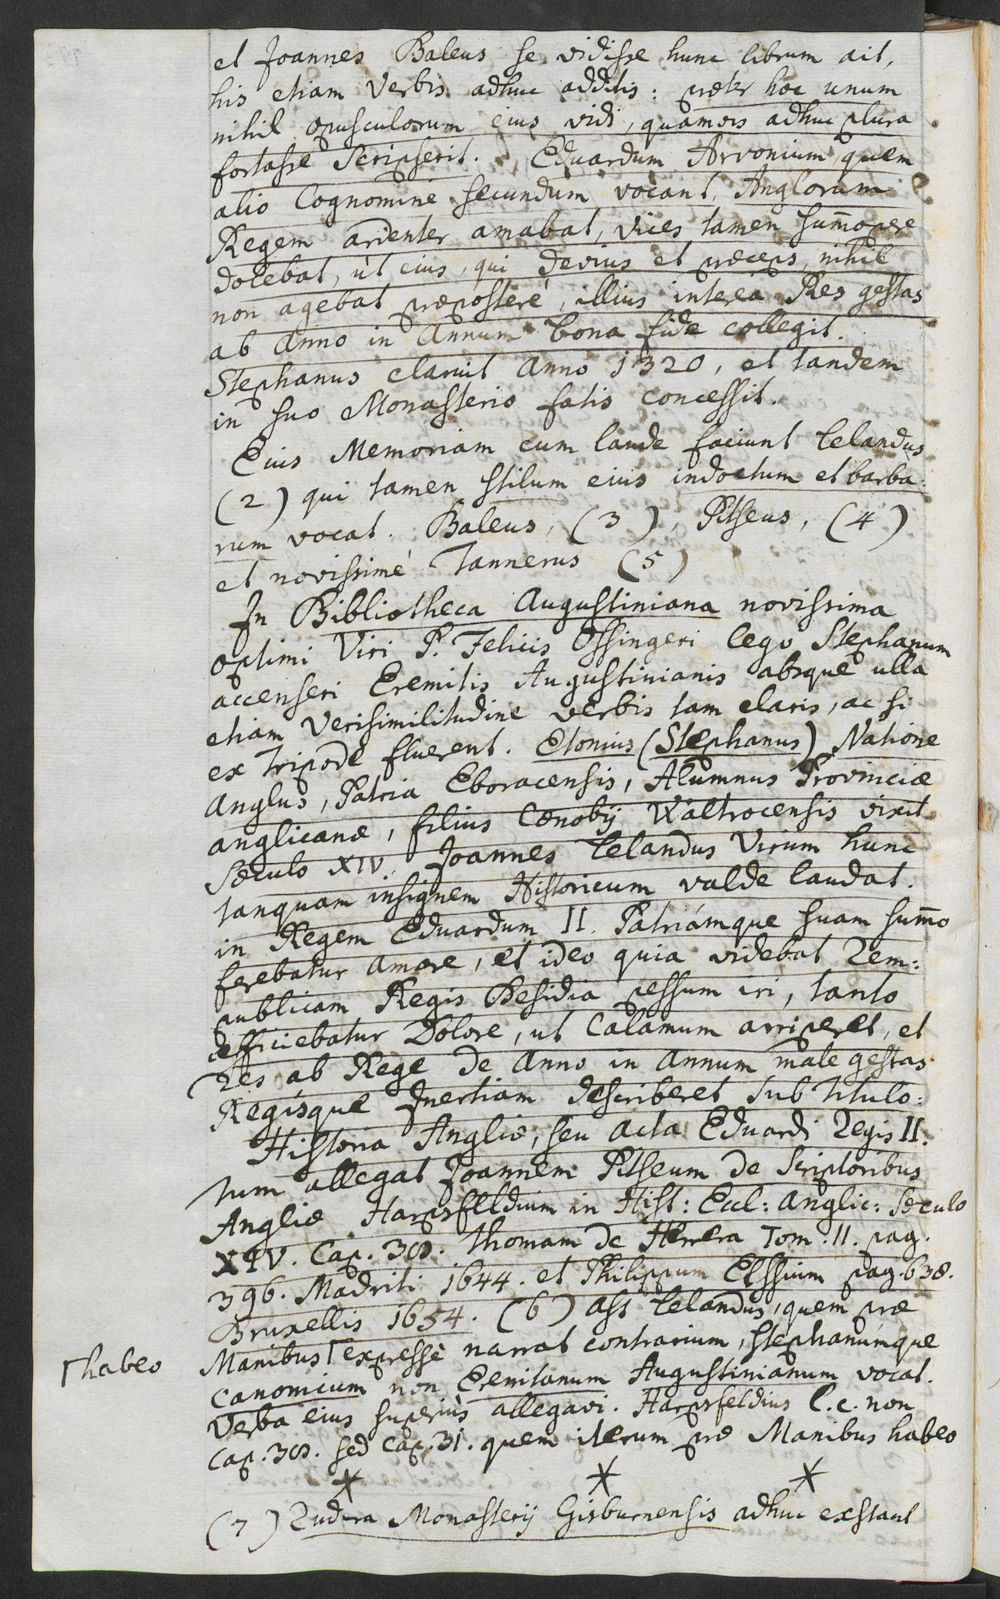 et Joannes Baleus se vidisse hunc librum ait,
his etiam Verbis adhuc additis: præter hoc unum
nihil opusculorum eius vidi, quamvis adhuc plura
fortasse scripserit. Eduardum Arvonium, quem
alio Cognomine secundum vocant, Anglorum
Regem ardenter amabat, vices tamen sum̄opere
dolebat, ut eius, qui devius et præceps, nihil
non agebat præposterè, illius interea Res gestas
ab Anno in Annum bona fide collegit.
Stephanus claruit Anno 1320, et tandem
in suo Monasterio fatis concessit.
Eius Memoriam cum laude faciunt Lelandus
(2) qui tamen stilum eius indoctum et barba:
rum vocat. Baleus, (3), Pitseus, (4)
et novissimè Tannerus (5)
In Bibliotheca Augustiniana novissima
optimi Viri P. Felicis Ossingeri lego Stephanum
accenseri Eremitis Augustinianis absque ulla
etiam Verisimilitudine verbis tam claris, ac si
ex tripode fluerent. Etonius (Stephanus) Natione
Anglus, Patria Eboracensis, Alumnus Provinciæ
anglicanæ, filius Cœnobij Waltrocensis vixit
Sæculo XIV. Joannes Lelandus Virum hunc
tanquam insignem Historicum valde laudat.
in Regem Eduardum II. Patriámque suam sum̄o
ferebatur amore, et ideo quia videbat Rem:
publicam Regis Desidia pessum iri, tanto
efficiebatur Dolore, ut Calamum arriperet, et
Res ab Rege de Anno in Annum male gestas
Regísque Inertiam describeret sub titulo:
Historia Angliæ, seu acta Eduardi Regis II.
tum allegat Joannem Pitseum de Scriptoribus
Angliæ Harpsfeldium in Hist: Eccl: Anglic: Sæculo
XIV. Cap. 30. Thomam de Herrera Tom. II. pag.
396. Madriti 1644. et Philippum Elssium pag. 638.
Bruxellis 1654. (6) ast Lelandus, quem præ
Manibus Γ expressè narrat contrarium, Stephanúmque
Γ habeo
Canonicum non Eremitanum Augustinianum vocat.
Verba eius superiùs allegavi. Harpsfeldius l. c. non
Cap. 30. sed Cap. 31. quem iterum præ Manibus habeo
* * *
(7) Rudera Monasterij Gisburnensis adhuc exstant